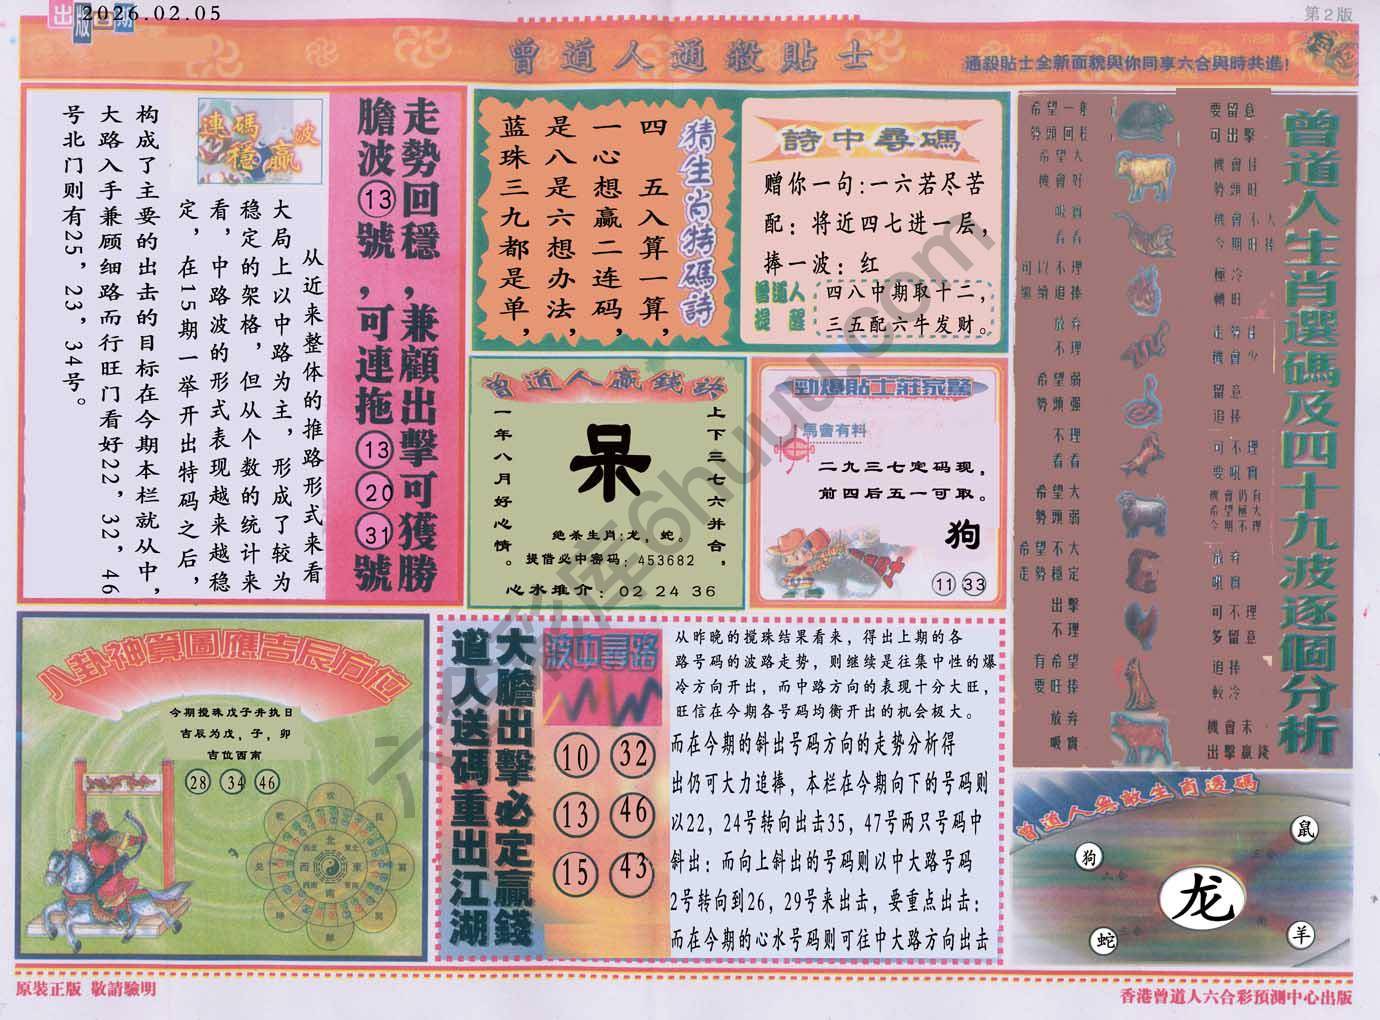 出版日期
2026.02.05
第2版
曾道人通殺貼士
通殺貼士全新面貌與你同享六合與時共進!
走勢回穩,兼顧出擊可獲勝
膽波⑬號,可連拖⑬⑳㉛號
連碼波
穩贏
从近来整体的推路形式来看
大局上以中路为主,形成了较为
稳定的架格,但从个数的统计来
看,中路波的形式表现越来越稳
定,在15期一举开出特码之后,
构成了主要的出击的目标在今期本栏就从中,
大路入手兼顾细路而行旺门看好22,32,46
号北门则有25,23,34号。
猜生肖特碼詩
四五入算一算,
一心想赢二连码,
是八是六想办法,
蓝珠三九都是单,
詩中尋碼
赠你一句:一六若尽苦
配:将近四七进一层,
捧一波:红
曾道人
提醒
四八中期取十二,
三五配六牛发财。
曾道人贏錢
上下三七六并合,
呆
一年八月好心情。
绝杀生肖:龙,蛇。
提借必中密码:453682
心水推介:02 24 36
勁爆貼士莊家驚
馬會有料
二九三七定码现,
前四后五一可取。
狗
11 33
曾道人生肖選碼及四十九波逐個分析
希望一般
勢頭回穩
要留意
可出擊
希望大
機會好
機會佳
勢頭旺
吸實
看看
機會不大
今期旺捧
可以不理
繼續追捧
極冷
轉旺
放弃
不理
走勢佳
機會少
希望弱
勢頭强
留意
追捧
不理
看看
可不理
要吼實
希望大
勢頭弱
機會仍有
希望極大
今期不理
希望不大
走勢穩定
放弃
吼實
出擊
不理
可不理
多留意
有希望
要旺捧
追捧
較冷
放弃
吸實
機會未
出擊贏錢
八卦神算圖應吉辰方位
今期搅珠戊子井执日
吉辰为戊,子,卯
吉位西南
28 34 46
大膽出擊必定贏錢
道人送碼重出江湖
波中尋路
10 32
13 46
15 43
从昨晚的搅珠结果看来,得出上期的各
路号码的波路走势,则继续是往集中性的爆
冷方向开出,而中路方向的表现十分大旺,
旺信在今期各号码均衡开出的机会极大。
而在今期的斜出号码方向的走势分析得
出仍可大力追捧,本栏在今期向下的号码则
以22,24号转向出击35,47号两只号码中
斜出:而向上斜出的号码则以中大路号码
2号转向到26,29号来出击,要重点出击:
而在今期的心水号码则可往中大路方向出击
曾道人無敵生肖透碼
鼠
狗
龙
蛇
羊
六彩库6huuu.com
原裝正版 敬請驗明
香港曾道人六合彩預測中心出版